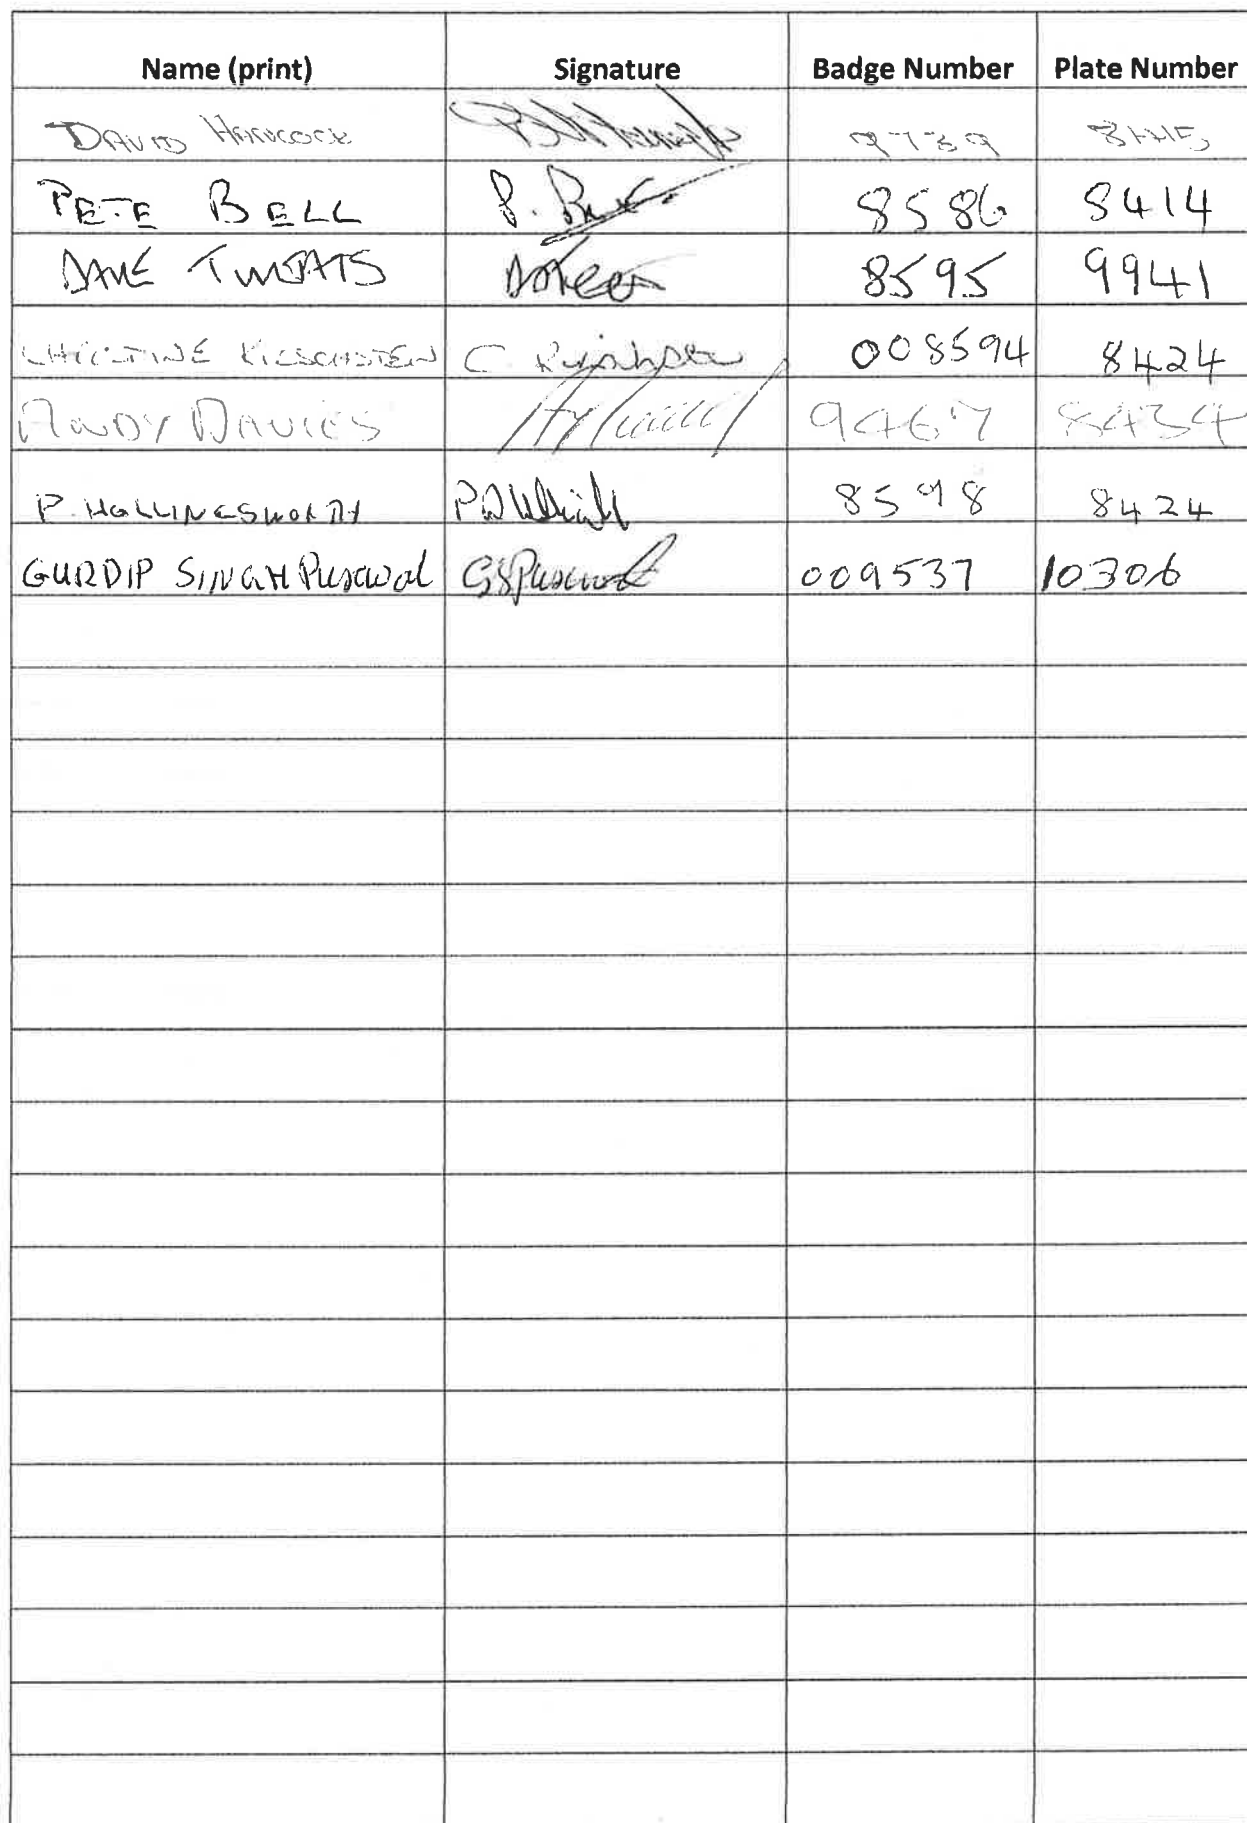 Name (print) Signature Badge Number Plate Number
DAVID HANCOCK 9739 8445
PETE BELL P. Bell 8586 8414
DAVE TWEATS 8595 9941
CHRISTINE C 008594 8424
ANDY DAVIES 9467 8434
P. HOLLINGSWORTH 8598 8424
GURDIP SINGH Purewal GSPurewal 009537 10306